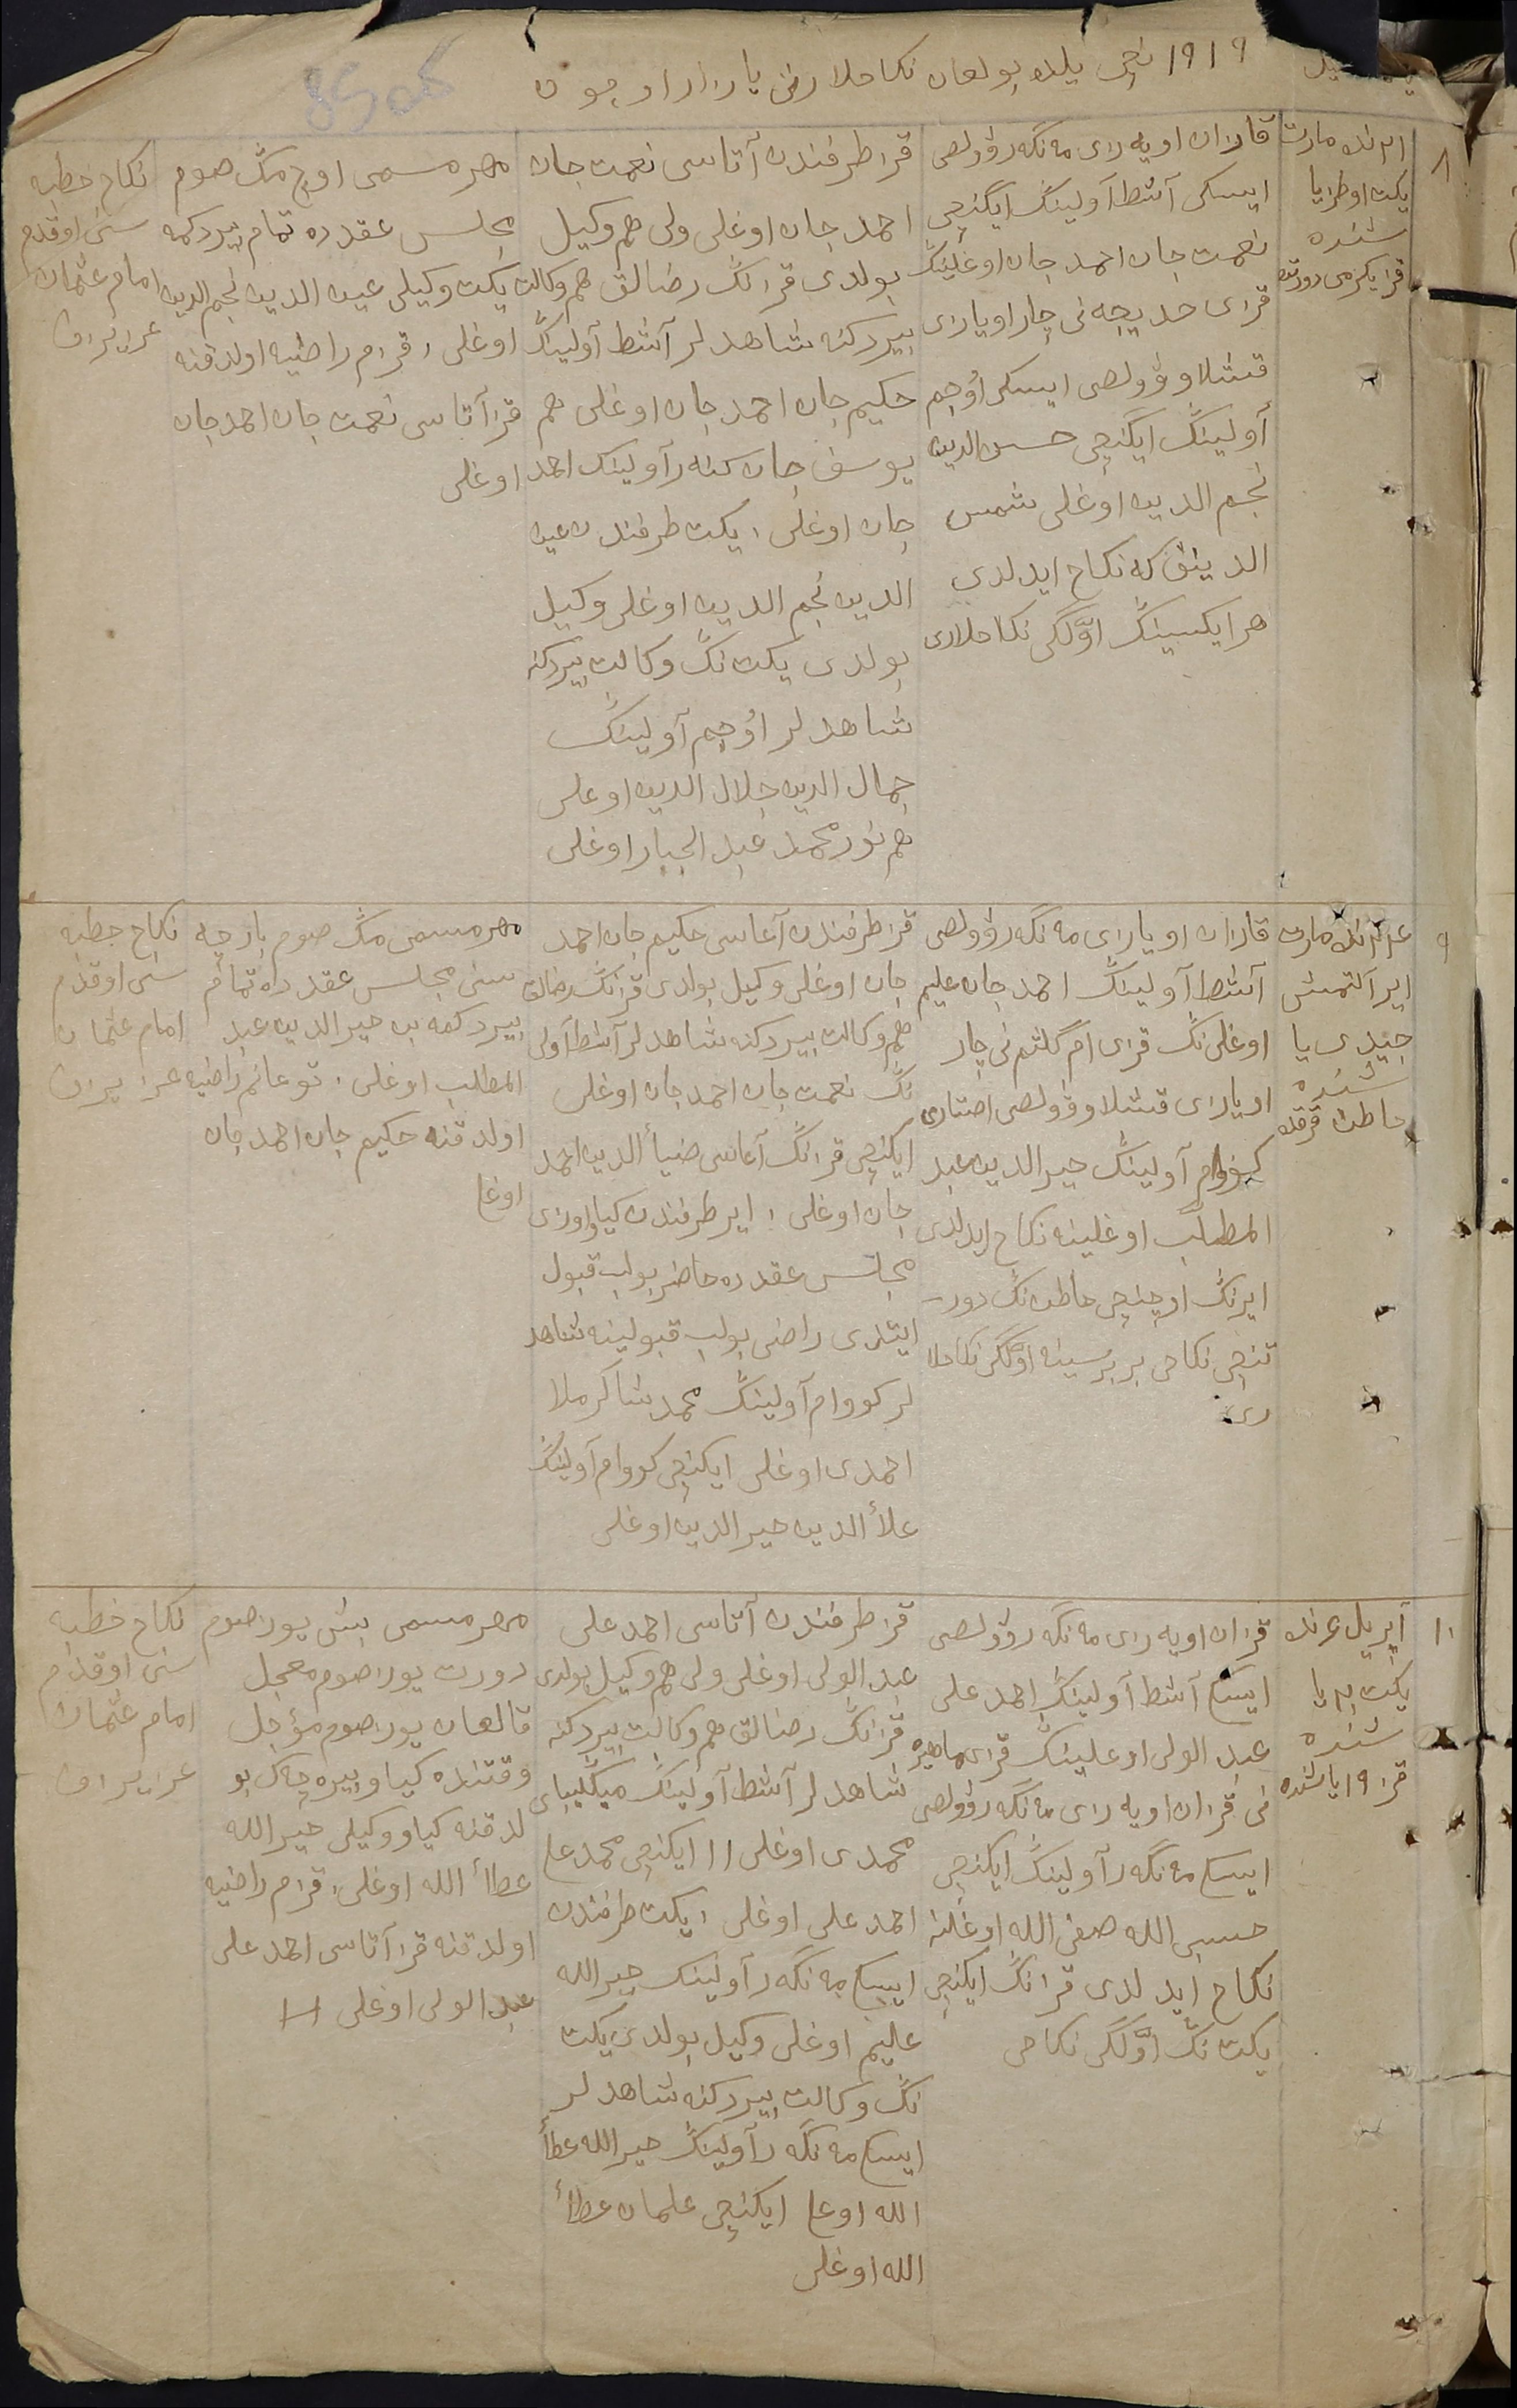 ١٩١٩ نچی یلده بولغان نکاحلارنی یازار اوچون
٨
مارت
یکت اوطز یا
شنده
قز یکرمی دورتده
قازان اویه زی مه نگه ر وولصی
ایسکی آشط آولینڭ ایگنچی
نعمت جان احمد جان اوغلینڭ
قزی خدیجه نی چار اویازی
قشلاو وولصی ایسکی اوچم
آولینڭ ایگنچی حسن الدین
نجم الدین اوغلی شمس
الدینق که نکاح ایدلدی
هر ایکیسینڭ اوّلگی نکاحلاری
قز طرفندن آتاسی نعمت جان
احمد جان اوغلی ولی هم وکیل
بولدی قزنڭ رضالق هم وکالت
بیردکنه شاهدلر آشط آولینڭ
حکیم جان احمد جان اوغلی هم
یوسف جان آولینڭ احمد
جان اوغلی ، یکت طرفندن عین
الدین نجم الدین اوغلی وکیل
بولدی یکت نڭ وکالت بیردکنه
شاهدلر اوچم آولینڭ
جمال الدین جلال الدین اوغلی
هم نور محمد عبد الجبار اوغلی
مهر مسمی اوچ مڭ صوم
مجلس عقدده تمام بیردکمه
یکت وکیلی عین الدین نجم الدین
اوغلی ، قزم راضیه اولدقنه
قز آتاسی نعمت جان احمد جان
اوغلی
نکاح خطبه
سنی اوقدم
امام عثمان
٩
مارت
ایر آلتمش
جیدی یا
شنده
خاطن قرقده
قازان اویازی مه نگه ر وولصی
آشط آولینڭ احمد جان علیم
اوغلی نڭ قزی ام گلثم نی چار
اویازی قشلاو وولصی
آولینڭ خیر الدین عبد
المطلب اوغلینه نکاح ایدلدی
ایرنڭ اوچنچی خاطن نڭ دور
تنچی نکاحی بر برسینه اوّلگی نکاحلا
ری
قز طرفندن آغاسی حکیم جان احمد
جان اوغلی وکیل بولدی قزنڭ رضالق
هم وکالت بیردکنه شاهدلر آشط آولی
نڭ نعمت جان احمد جان اوغلی
ایکنچی قزنڭ آغاسی ضیأ الدین احمد
جان اوغلی ، ایر طرفندن کیاو اوزی
مجلس عقدده حاضر بولب قبول
ایتدی راضی بولب قبولینه شاهد
لر کووام آولینڭ محمد شاکر ملا
احمدی اوغلی ایکنچی کووام آولینڭ
علأ الدین خیر الدین اوغلی
مهر مسمی مڭ صوم بارچه
سنی مجلس عقدده تمام
بیردکمه خیر الدین عبد
المطلب اوغلی ، راضیه
اولدقنه حکیم جان احمد جان
اوغلی
نکاح خطبه
سنی اوقدم
امام عثمان
١٠
آپریل
یکت یا
شنده
قز ١٩ یاشنده
قزان اویه زی مه نگه ر وولصی
ایسکی آشط آولینڭ احمد علی
عبد الولی اوغلینڭ قزی ماهره
نی قزان اویه زی مه نگه ر وولصی
ایسکی مه نگه ر آولینڭ ایکنچی
حسبی الله صفی الله اوغلنه
نکاح ایدلدی قزنڭ ایکنچی
یکت نڭ اوّلگی نکاحی
قز طرفندن آتاسی احمد علی
عبد الولی اوغلی ولی هم وکیل بولدی
قزنڭ رضالق هم وکالت بیردکنه
شاهدلر آشط آولینڭ
محمدی اوغلی ١١ ایکنچی محمد علی
احمد علی اوغلی ، یکت طرفندن
ایسکی مه نگه ر آولینڭ خیر الله
علیم اوغلی وکیل بولدی یکت
نڭ وکالت بیردکنه شاهدلر
ایسکی مه نگه ر آولینڭ خیر الله عطأ
الله اوغلی ایکنچی عطأ
الله اوغلی
مهر مسمی بیش یوز صوم
دورت یوز صوم معجل
قالغان یوز صوم مؤجل
وقتنده کیاو بیره چک بو
لدقنه کیاو وکیلی خیر الله
عطأ الله اوغلی ، قزم راضیه
اولدقنه قز آتاسی احمد علی
عبد الولی اوغلی
نکاح خطبه
سنی اوقدم
امام عثمان